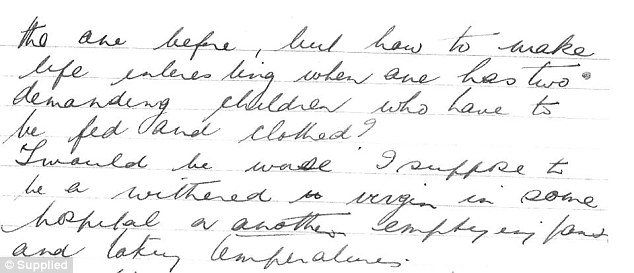 the one before, but how to make
life interesting when one has two
demanding children who have to
be fed and clothed?
I would be worse I suppose to
be a withered virgin in some
hospital or another emptying pans
and taking temperatures.
© Supplied